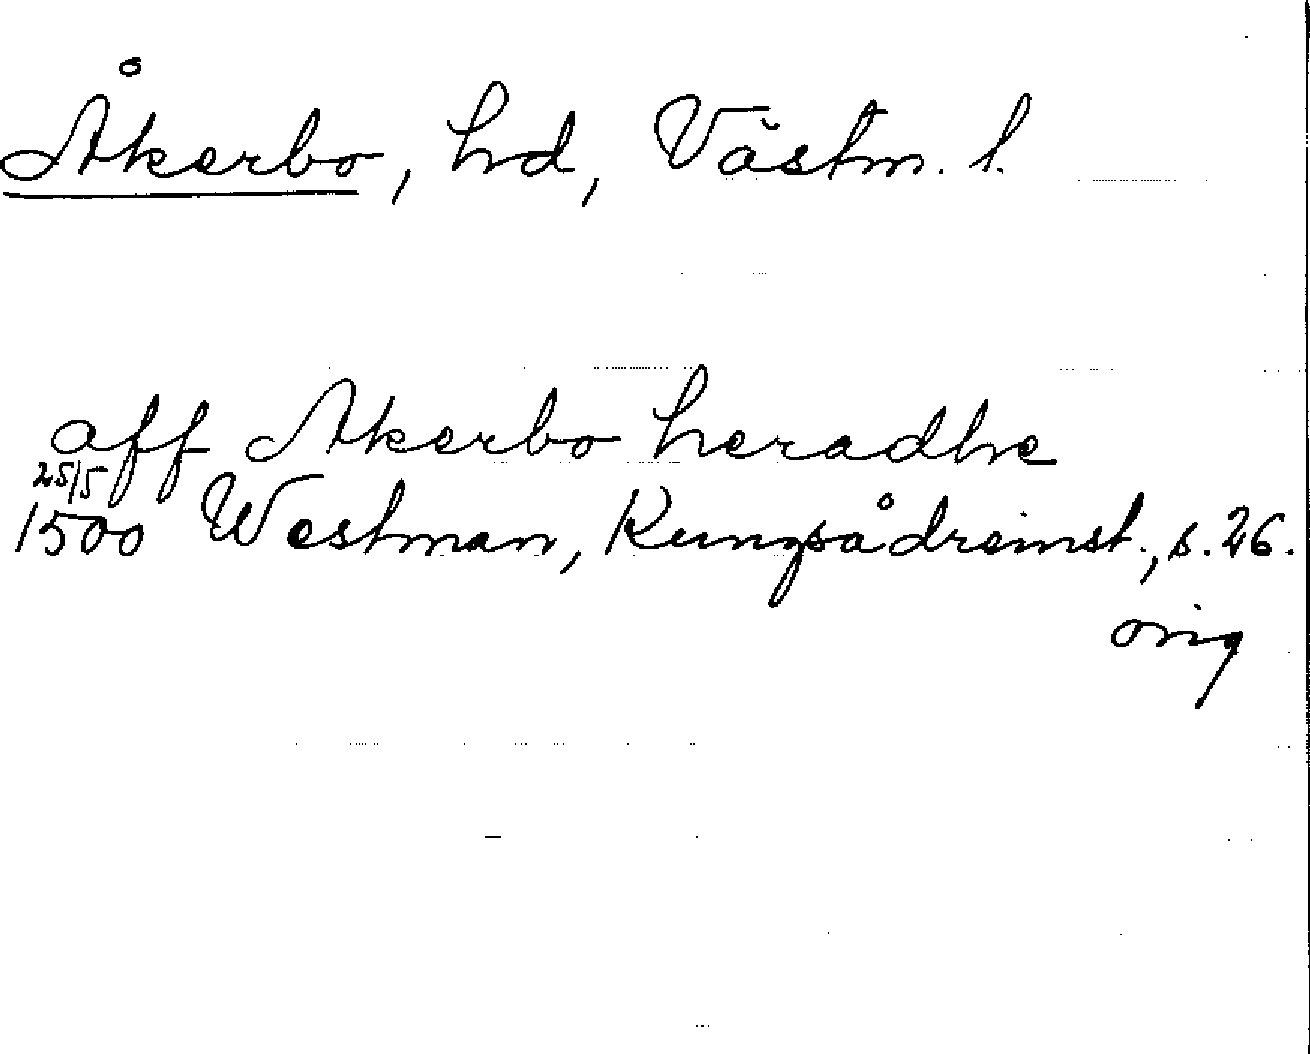 Åkerbo, hd, Västm. l.
aff Akerbo heradhe
25/5
1500 Westman, Kungsådreinst., s. 26.
orig